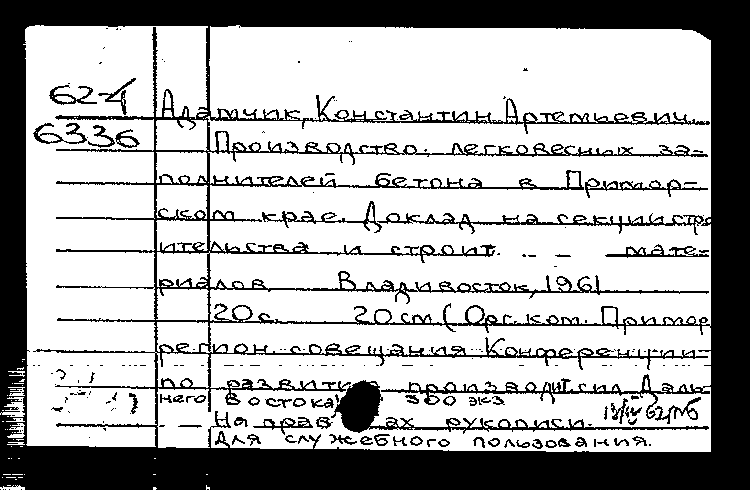 62-4
6336
Адамчик, Константин Артемьевич.
Производство легковесных за-
полнителей бетона в Примор-
ском крае. Доклад на секции стро
ительства и строит. мате-
риалов. Владивосток, 1961
20 с. 20 см (Орг. ком. Примор
регион. совещания Конференции
по развитию производит. сил Даль
него Востока) 300 экз
На прав ах рукописи.
Для служебного пользования.